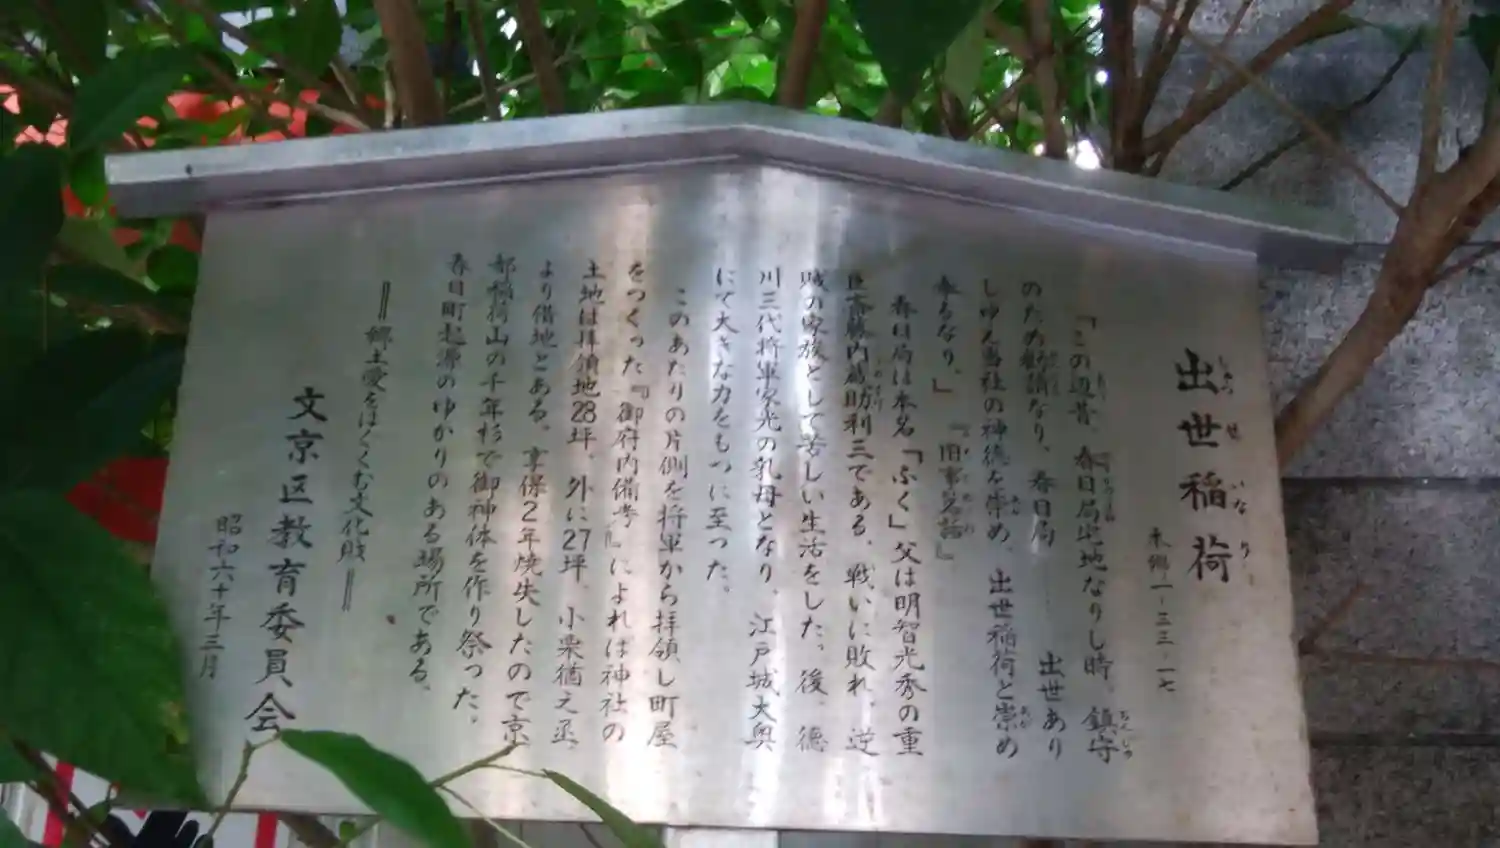 出世稲荷
本郷一-三三-一七
「この辺昔、春日局宅地なりし時、鎮守
のため勧請なり、春日局 出世あり
しゆへ当社の神徳を崇め、出世稲荷と崇め
奉るなり。」 『旧事茗話』
春日局は本名「ふく」父は明智光秀の重
臣斎藤内蔵助利三である、戦いに敗れ、逆
賊の家族として苦しい生活をした。後、徳
川三代将軍家光の乳母となり、江戸城大奥
にて大きな力をもつに至った。
このあたりの片側を将軍から拝領し町屋
をつくった『御府内備考』によれば神社の
土地は拝領地28坪、外に27坪、小栗猶之丞
より借地とある。享保2年焼失したので京
都稲荷山の千年杉で御神体を作り祭った。
春日町起源のゆかりのある場所である。
郷土愛をはぐくむ文化財
文京区教育委員会
昭和六十年三月